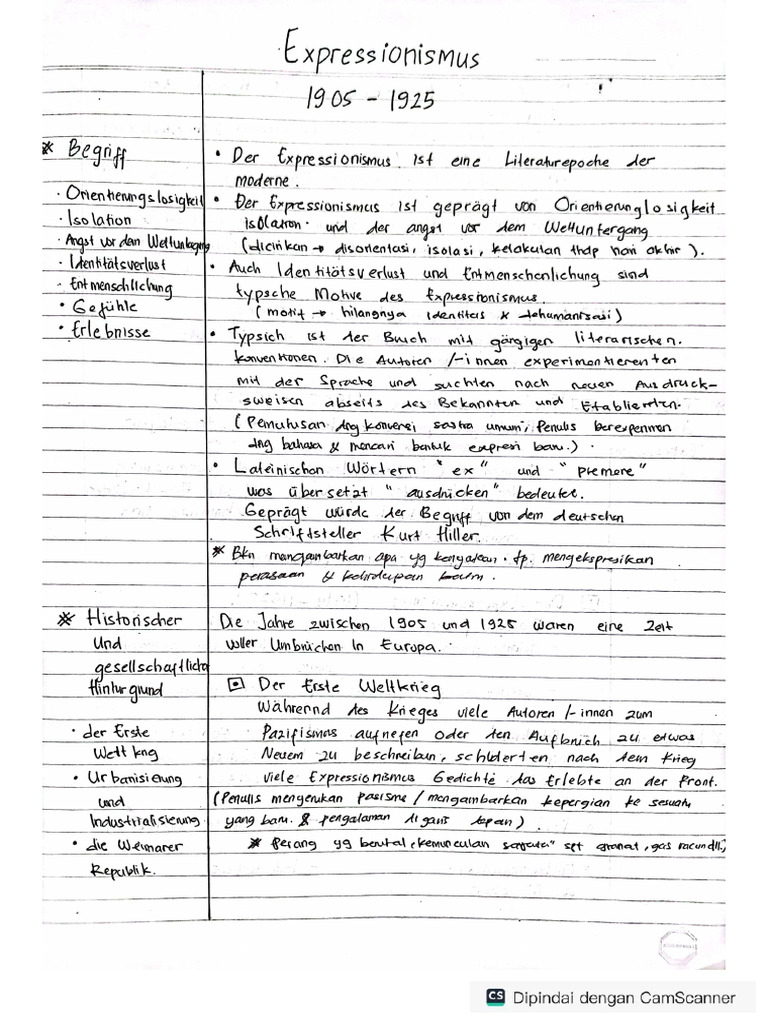 Expressionismus
1905 - 1925
* Begriff
· Orientierungslosigkeit
· Isolation
· Angst vor dem Weltuntergang
· Identitätsverlust
· Entmenschlichung
• Gefühle
• Erlebnisse
• Der Expressionismus ist eine Literaturepoche der
moderne.
• Der Expressionismus ist geprägt von Orientierunglosigkeit
isolation und der angst vor dem Weltuntergang
(dicirikan → disorientasi, isolasi, ketakutan thdp hari akhir).
• Auch Identitätsverlust und Entmenschenlichung sind
typsche Motive des Expressionismus.
(motif → hilangnya identitas & dehumanisasi)
• Typsich ist der Bruch mit gängigen literarischen.
konventionen. Die Autoren /-innen experimentierenten
mit der Sprache und suchten nach neuen Ausdruck-
sweisen abseits des Bekannten und Etablierten.
(Pemutusan dng konvensi sastra umum, penulis bereksperimen
dng bahasa & mencari bentuk expresi baru.).
• Lateinischen Wörtern "ex" und "premere"
was übersetzt "ausdrücken" bedeutet.
Geprägt wurde der Begriff von dem deutschen
Schriftsteller Kurt Hiller.
* Bkn mengambarkan apa yg kenyataan. tp. mengekspresikan
perasaan & kehidupan
* Historischer
und
gesellschaftlicher
Hintergrund
• der Erste
Weltkrieg
• Urbanisierung
und
Industrialisierung
• die Weimarer
Republik.
Die Jahre zwischen 1905 und 1925 waren eine Zeit
voller Umbrüchen In Europa.
Der Erste Weltkrieg
Während des Krieges viele Autoren /-innen zum
Pazifismus aufriefen oder den Aufbruch zu etwas
Neuem zu beschreiben, schilderten nach dem Krieg
viele Expressionismus Gedichte das Erlebte an der Front.
(Penulis menyerukan pasisme / mengambarkan kepergian ke sesuatu
yang baru. & pengalaman di garis depan)
* perang yg brutal, kemunculan senjata" spt granat, gas racun dll.)
CS Dipindai dengan CamScanner